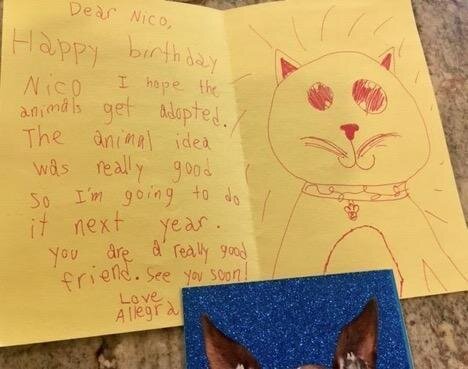 Dear Nico,
Happy birthday
Nico I hope the
animals get adopted.
The animal idea
was really good
so I'm going to do
it next year.
you are a really good
friend. See you soon!
Love
Allegra